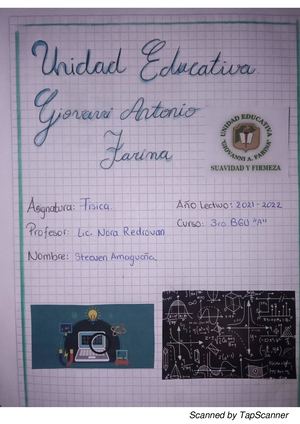 Unidad Educativa
Giovanni Antonio
Farina
UNIDAD EDUCATIVA
"GIOVANNI A. FARINA"
SUAVIDAD Y FIRMEZA
Asignatura: Física
Año Lectivo: 2021-2022
Profesor: Lic. Nora Redrovan
Curso: 3ro BGU "A"
Nombre: Steeven Amaguaña
Scanned by TapScanner